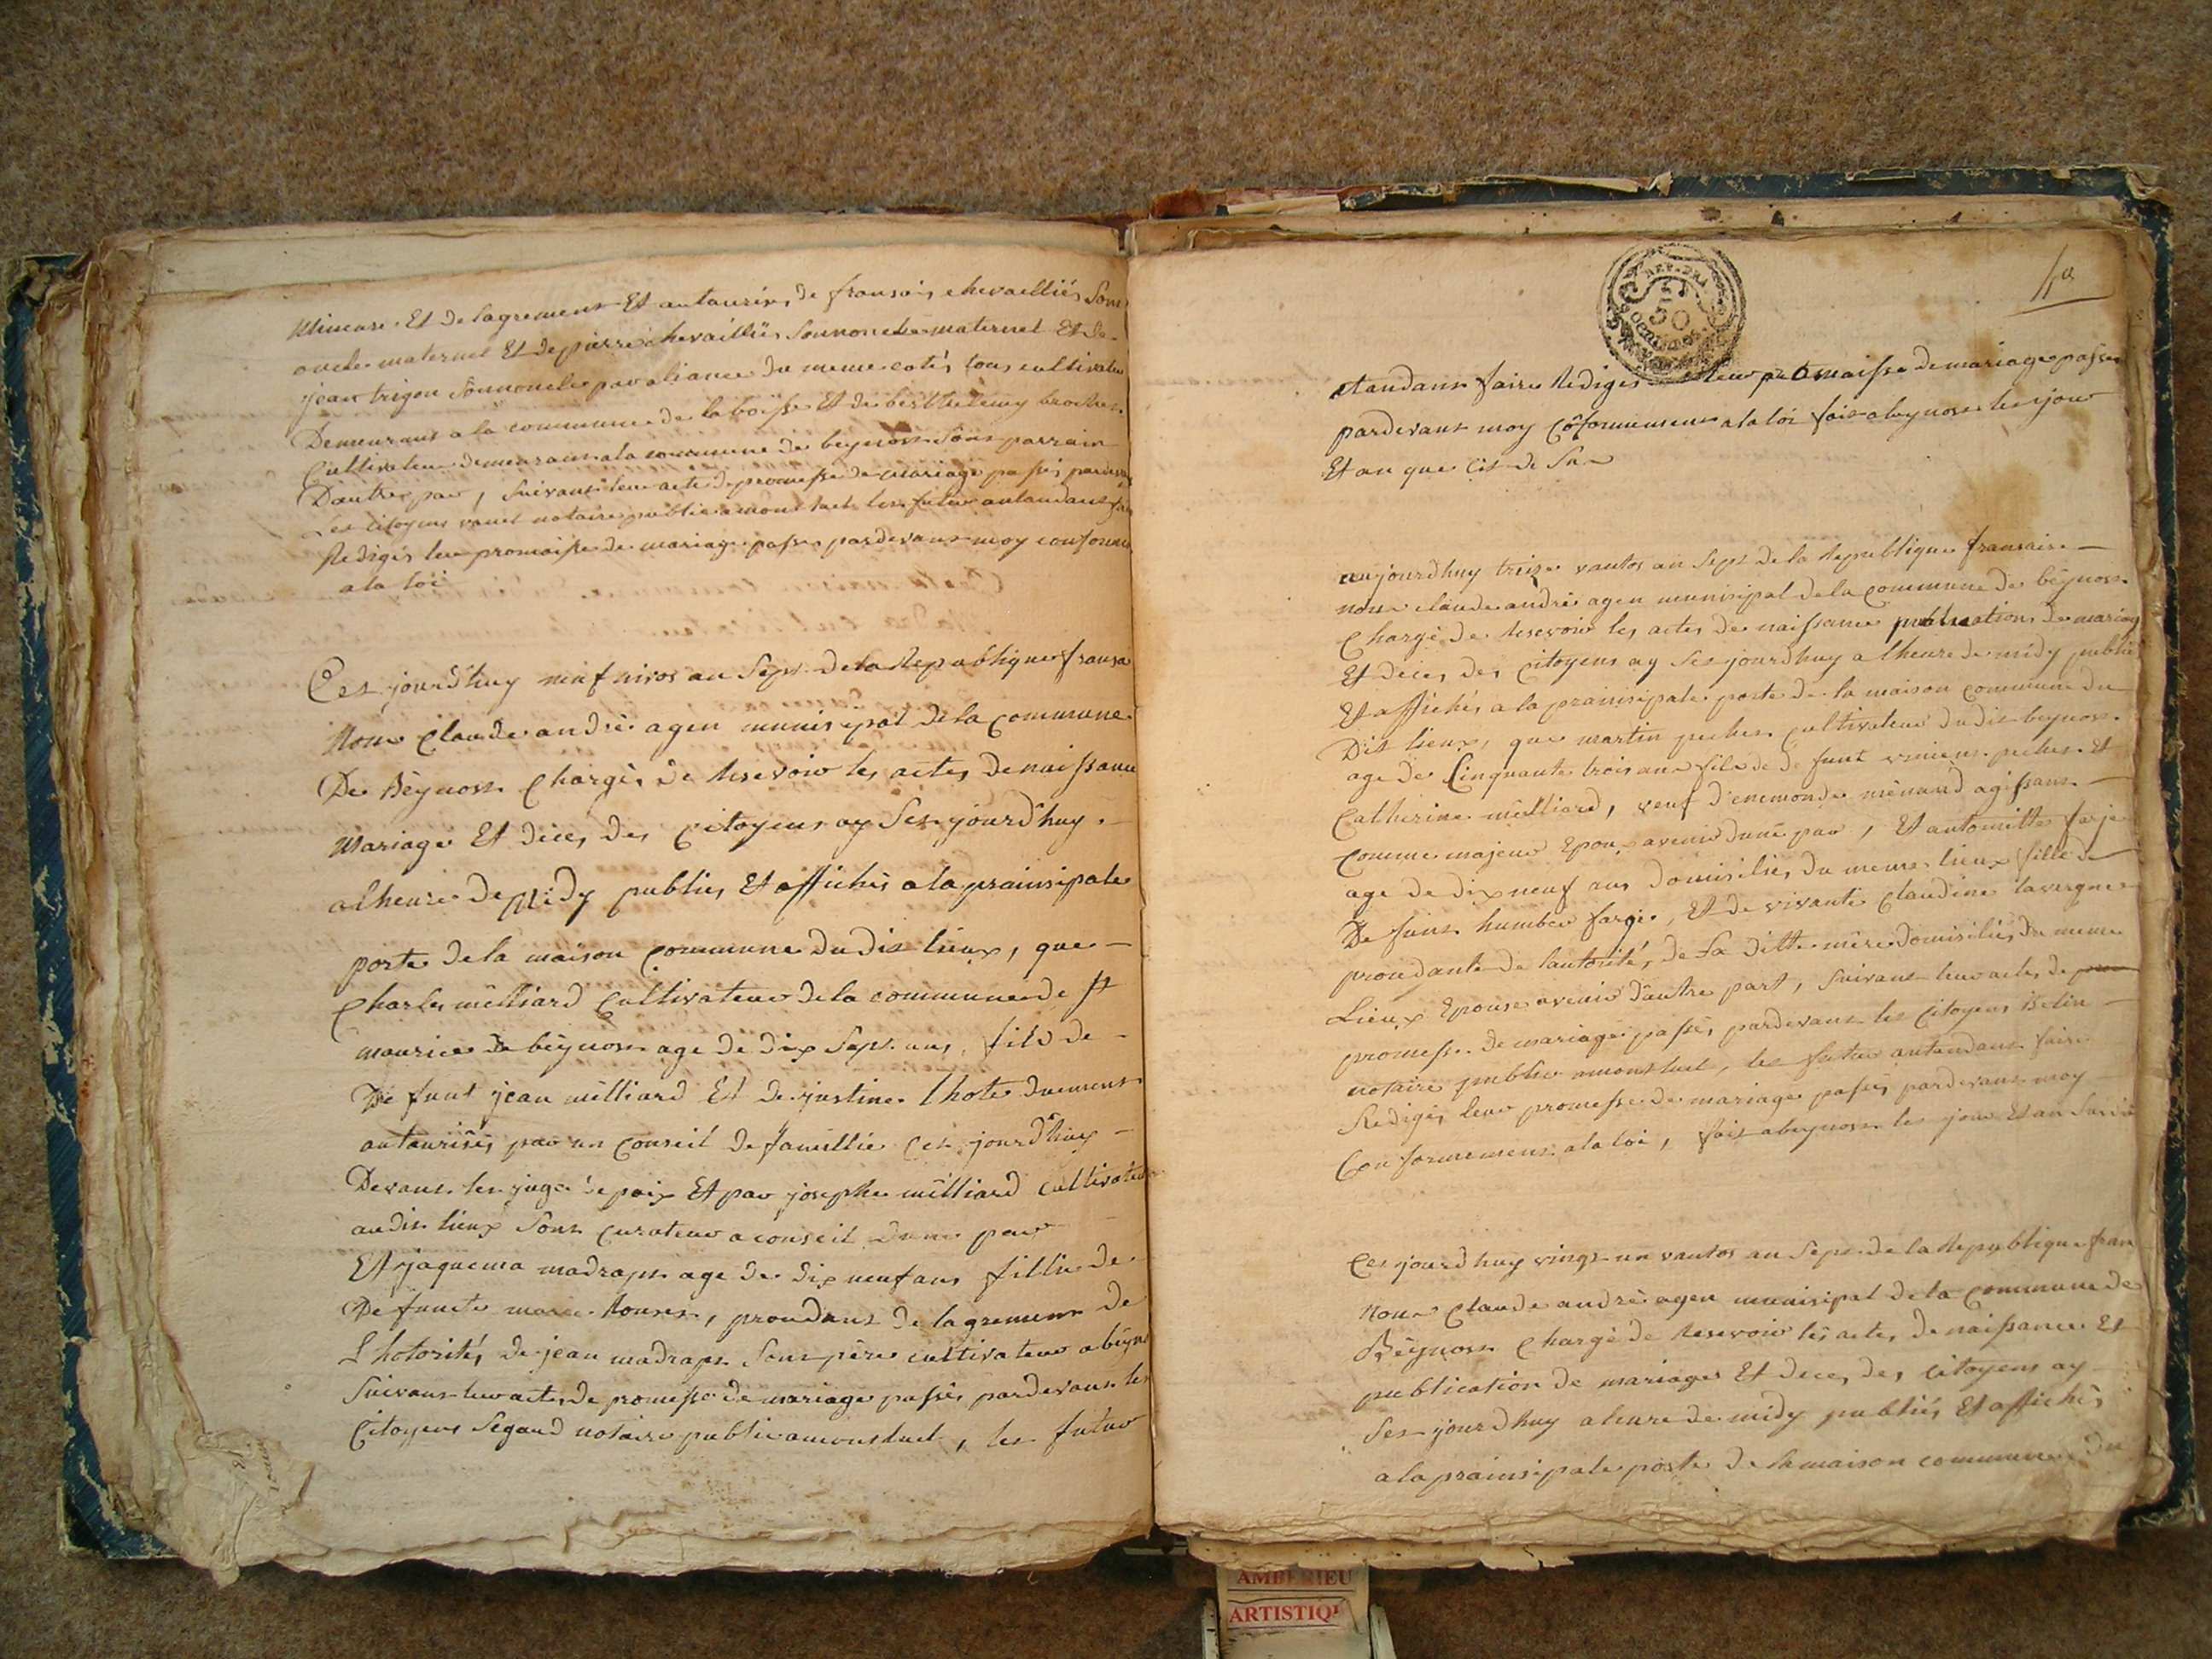 Mineure Et de lagrement Et autaurixes de fransois chevailliés Sont
oncle maternel Et de pierre chevailliés Sononcle maternel Et de
jean trigon Sononcle par aliance du meme cotés tous cultivateur
Demeurans a la commune de la boisse Et de berthelemy brochet
Cultivateur demeurans a la commune de beynost Sont parrain
Dautre par, Suivant leur acte de promesse de mariage passés pardevant
Les Citoyens notaire public amontluel les futur antandant faire
Redigés leur promaisse de mariage passer pardevant moy conforme
a la loi
Ces jourdhuy neuf nivos an Sept de la Republique fransa
Nous Claude andré agen munisipal de la Commune
De Bèynost Chargés de Resevoir les actes de naissance
Mariage Et déces des Citoyens ay Ses jourdhuy
alheure de Midy publies Et affichés a la prainsipale
porte de la maison Commune du dit lieux, que
Charles milliard Cultivateur de la commune de St
maurice de bèynost age de dix Sept ans, fils de
De funt jean milliard Et de justine lhote duement
autaurisés par un Conseil de famillie Ces jourdhuy
Devant les juge de paix Et par josephe milliard Cultivateur
audit lieux Sont Curateur a conseil dune par
Et jaquema madrapt age de dix neuf ans fillie de
De functe marie Rouset, prondant de lagrement de
Lhotorités de jean madrapt Sont père cultivateur a bèyno
Suivant leur actes de promesse de mariage passés pardevant les
Citoyens Segaud notaire public amontluel, les futur
50
4a
Atandant faire Rediges leur promaisse de mariage passer
pardevant moy Côformement a la loi fait a beynost les jour
Et an que Cit de Su
aujourdhuy treize vantos an Sept de la Republique fransaise
nous claude andré agen munisipal de la Commune de bèynost
Chargé de Resevoir les actes de naissance publication de mariag
Et déces des Citoyens ay Ses jourdhuy a lheure de midy publié
Et affichés a la prainsipale porte de la maison Commune du
Dit lieux, que martin peches Cultivateur dudit beynost
age de Cinquante trois ans fils de de funt peches Et
Catherine milliard, veuf d'enemonde ménard agissant
Comme majeur Epoux avenir dune par, Et antoinitte farje
age de dix neuf ans domisilies du meme lieux fille de
De funt humber farge, Et de vivante Claudine lavergne
prondante de lautorité, de Sa ditte mère domisiliés du meme
Lieux Epouse avenir dautre part, Suivant leur actes de
promesse de mariage passés pardevant les Citoyens Belin
notaire public amontluel, les futur antandant faire
Rediges leur promesse de mariage passés pardevant moy
Conformement a la loi, fait abeynost les jour Et an Susdit
Ces jourdhuy vingt un vantos an Sept de la Republique fran
Nous Claude andré agen munisipal de la Commune de
Bèynost Chargé de Resevoir les actes de naissance Et
publication de mariages Et déces des Citoyens ay
Ses jourdhuy a lheure de midy publiés Et affichés
a la prainsipale porte de la maison commune du
AMBERIEU
ARTISTIQ